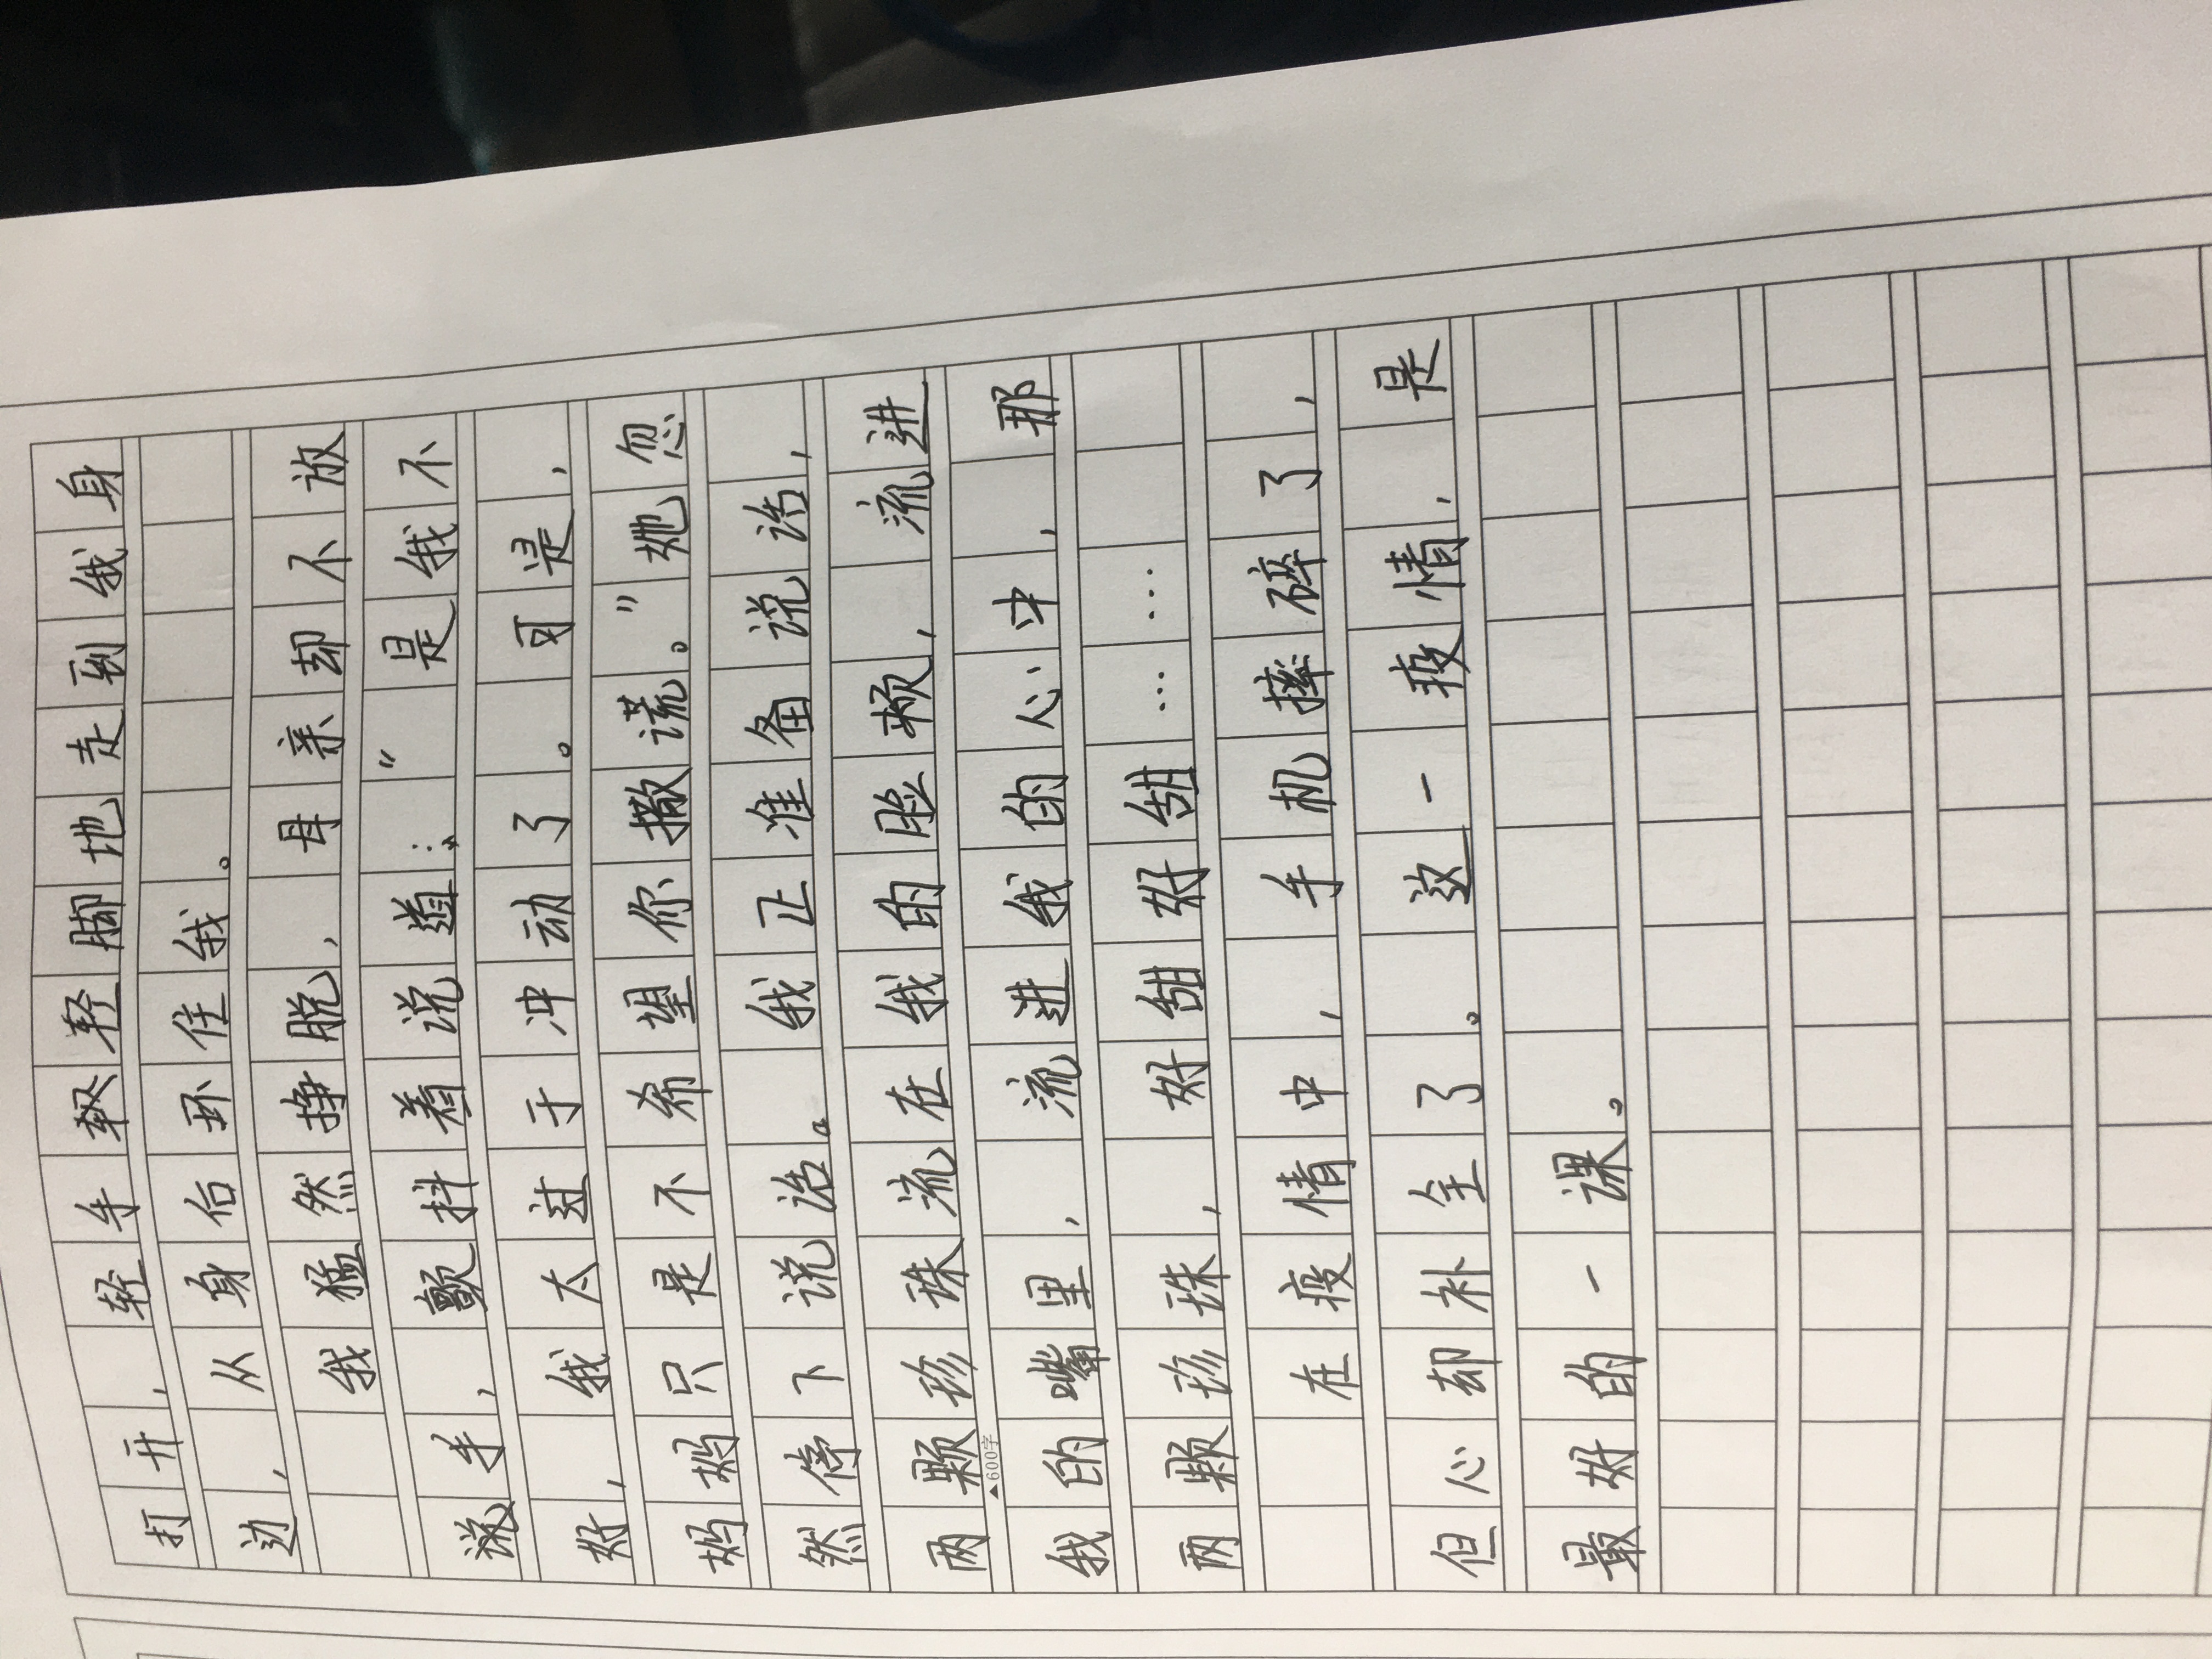 打开，轻手轻轻脚地走到我身
边，从身后环住我。
我猛然挣脱，母亲却不放
手，颤抖着说道：“是我不
好，我太过于冲动了。可是，
妈妈只是不希望你撒谎。”她忽
然停下说话。我正准备说话，
两颗珍珠流在我的脸颊，流进
▲600字
我的嘴里，流进我的心中，那
两颗珍珠，好甜好甜……
在疫情中，手机摔碎了，
但心却补全了。这一疫情，是
最好的一课。